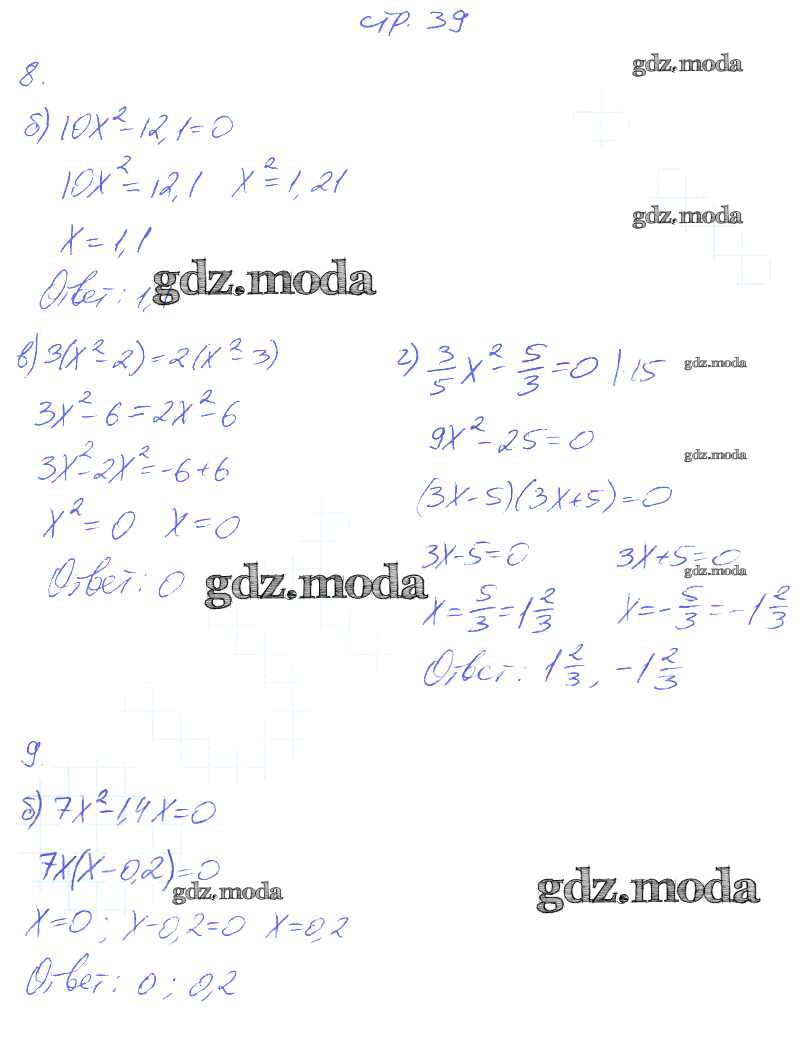 стр. 39
gdz.moda
8.
б) 10x² - 12,1 = 0
10x² = 12,1   x² = 1,21
gdz.moda
x = 1,1
gdz.moda
Ответ: 1,1
в) 3(x² - 2) = 2(x² - 3)
3x² - 6 = 2x² - 6
3x² - 2x² = -6 + 6
x² = 0   x = 0
Ответ: 0
gdz.moda
г) 3/5 x² - 5/3 = 0 | · 15
gdz.moda
9x² - 25 = 0
gdz.moda
(3x - 5)(3x + 5) = 0
3x - 5 = 0   3x + 5 = 0
gdz.moda
x = 5/3 = 1 2/3   x = - 5/3 = -1 2/3
Ответ: 1 2/3, -1 2/3
9.
б) 7x² - 1,4x = 0
7x(x - 0,2) = 0
gdz.moda
gdz.moda
x = 0; x - 0,2 = 0   x = 0,2
Ответ: 0; 0,2